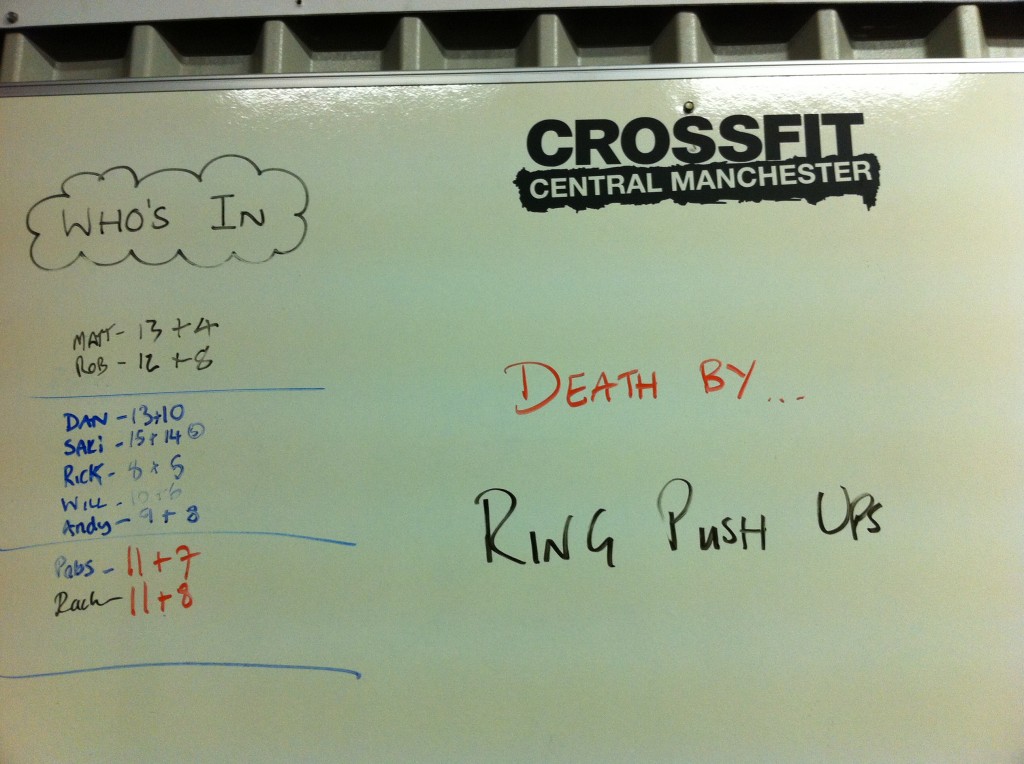 CROSSFIT
CENTRAL MANCHESTER
WHO'S IN
MATT - 13 + 4
ROB - 12 + 8
DAN - 13+10
SAKI - 15 + 14
RICK - 8 + 5
WILL - 10+6
Andy - 9 + 8
Pabs - 11 + 7
Rach - 11 + 8
DEATH BY...
RING PUSH UPS